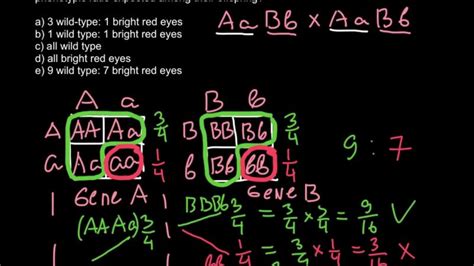 phenotypic ratio expected among their offspring?
a) 3 wild-type: 1 bright red eyes
b) 1 wild type: 1 bright red eyes
c) all wild type
d) all bright red eyes
e) 9 wild type: 7 bright red eyes
AaBb x AaBb
A a B b
A AA Aa 3/4 B BB Bb 3/4
a Aa aa 1/4 b Bb bb 1/4
9 : 7
Gene A Gene B
(AA Aa) 3/4 BB Bb 3/4 = 3/4 x 3/4 = 9/16 ✓
bb 1/4 = 3/4 x 1/4 = 3/16 X